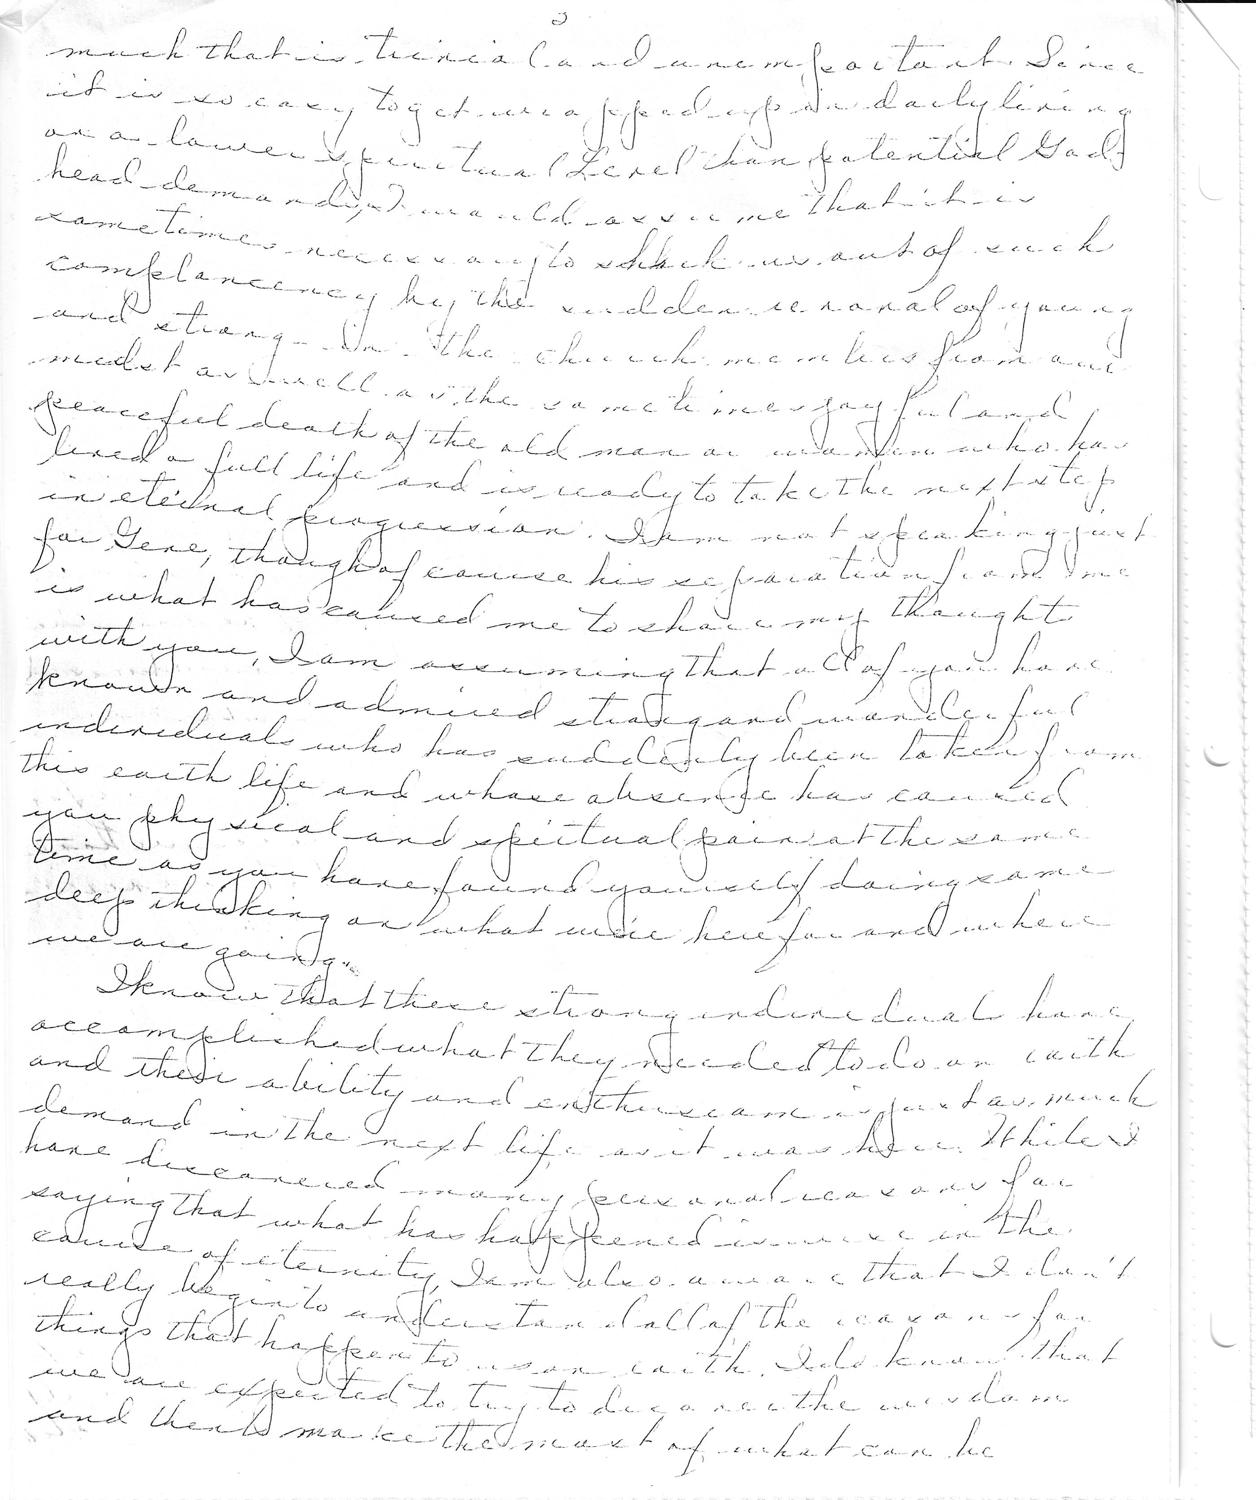 2
much that is trivial and unimportant. Since
it is so easy to get wrapped up in daily living
on a lower spiritual Level than potential God-
head demands, I would assume that it is
sometimes necessary to shock us out of such
complancency by the sudden removal of young
and strong in the church members from our
midst as well as the sometimes joyful and
peaceful death of the old man or woman who has
lived a full life and is ready to take the next step
in eternal progression. I am not speaking just
for Gene, though of course his separation from me
is what has caused me to share my thought
with you, I am assuming that all of you have
known and admired strong and wonderful
individuals who has suddenly been taken from
this earth life and whose absence has caused
you physical and spiritual pain at the same
time as you have found yourself doing some
deep thinking on what we're here for and where
we are going.
I know that these strong individuals have
accomplished what they needed to do on earth
and their ability and enthusiasm is just as much
demand in the next life as it was here. While I
have discovered many personal reasons for
saying that what has happened is wise in the
course of eternity, I am also aware that I don't
really begin to understand all of the reasons for
things that happen to us on earth. I do know that
we are expected to try to discover the wisdom
and then to make the most of what can be